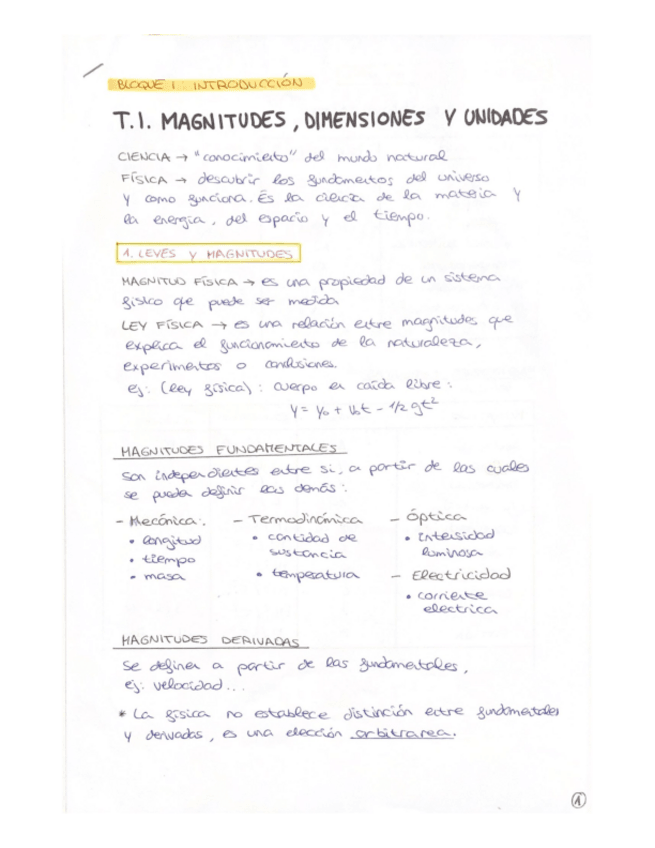 BLOQUE 1: INTRODUCCIÓN
T.1. MAGNITUDES, DIMENSIONES Y UNIDADES
CIENCIA → "conocimiento" del mundo natural
FÍSICA → descubrir los fundamentos del universo
y como funciona. Es la ciencia de la materia y
la energía, del espacio y el tiempo.
1. LEYES Y MAGNITUDES
MAGNITUD FÍSICA → es una propiedad de un sistema
físico que puede ser medida
LEY FÍSICA → es una relación entre magnitudes que
explica el funcionamiento de la naturaleza,
experimentos o conclusiones.
ej: (ley física): cuerpo en caída libre:
y = y₀ + v₀t - 1/2 gt²
MAGNITUDES FUNDAMENTALES
Son independientes entre si, a partir de las cuales
se pueden definir las demás:
- Mecánica:
• longitud
• tiempo
• masa
- Termodinámica
• cantidad de
sustancia
• temperatura
- Óptica
• intensidad
luminosa
- Electricidad
• corriente
electrica
MAGNITUDES DERIVADAS
Se definen a partir de las fundamentales,
ej: velocidad...
* La física no establece distinción entre fundamentales
y derivadas, es una elección arbitrarea.
1